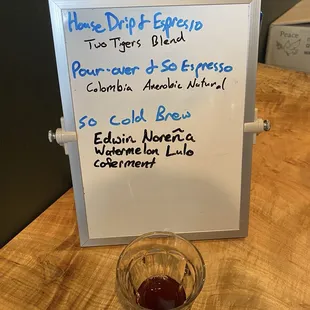 House Drip & Espresso
Two Tigers Blend
Pour-over & SO Espresso
Colombia Anaerobic Natural
SO Cold Brew
Edwin Noreña
Watermelon Lulo
Coferment
Peace